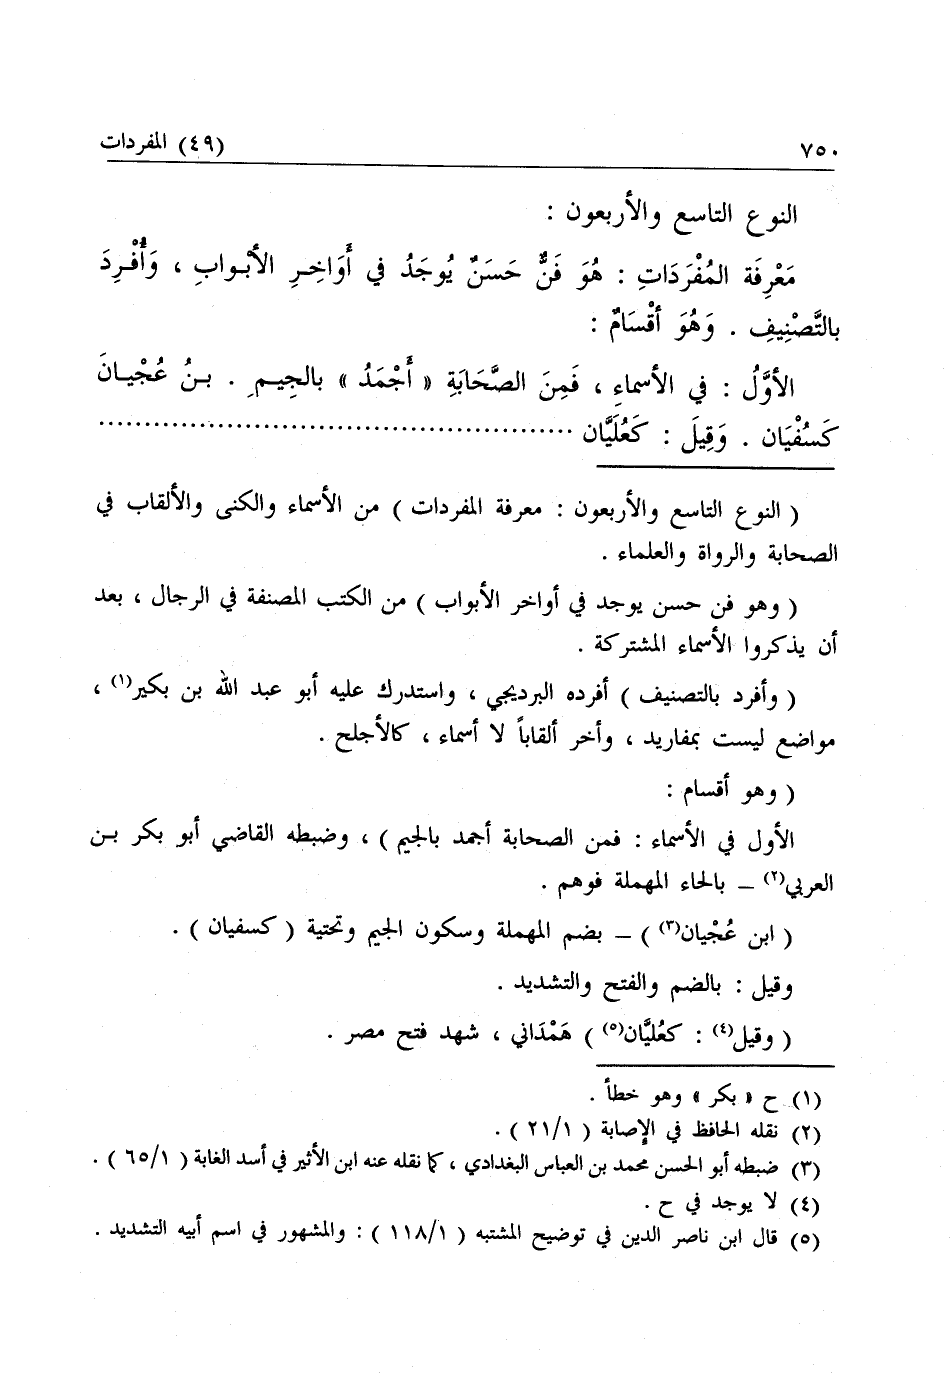 ٧٥٠
(٤٩) المفردات
النوع التاسع والأربعون :
مَعْرِفَة المُفْرَدَاتِ : هُوَ فَنٌّ حَسَنٌ يُوجَدُ في أَوَاخِرِ الأَبْوابِ ، وَأُفْرِدَ
بالتَّصْنِيفِ . وَهُوَ أقْسَامٌ :
الأوَّلُ : في الأسماءِ ، فَمِنَ الصَّحَابَةِ « أَجْمَدُ » بالجِيمِ . بنُ عُجْيانَ
كَسُفْيَان . وَقِيلَ : كَعُلَيَّان ..................................................
( النوع التاسع والأربعون : معرفة المفردات ) من الأسماء والكنى والألقاب في
الصحابة والرواة والعلماء .
( وهو فن حسن يوجد في أواخر الأبواب ) من الكتب المصنفة في الرجال ، بعد
أن يذكروا الأسماء المشتركة .
( وأفرد بالتصنيف ) أفرده البرديجي ، واستدرك عليه أبو عبد الله بن بكير(١) ،
مواضع ليست بمفاريد ، وأخر ألقاباً لا أسماء ، كالأجلح .
( وهو أقسام :
الأول في الأسماء : فمن الصحابة أجمد بالجيم ) ، وضبطه القاضي أبو بكر بن
العربي(٢) ــ بالحاء المهملة فوهم .
( ابن عُجْيان(٣) ) ــ بضم المهملة وسكون الجيم وتحتية ( كسفيان ) .
وقيل : بالضم والفتح والتشديد .
( وقيل(٤) : كعُليَّان(٥) ) هَمْدَاني ، شهد فتح مصر .
(١) ح « بكر » وهو خطأ .
(٢) نقله الحافظ في الإصابة ( ٢١/١ ) .
(٣) ضبطه أبو الحسن محمد بن العباس البغدادي ، كما نقله عنه ابن الأثير في أسد الغابة ( ٦٥/١ ) .
(٤) لا يوجد في ح .
(٥) قال ابن ناصر الدين في توضيح المشتبه ( ١١٨/١ ) : والمشهور في اسم أبيه التشديد .